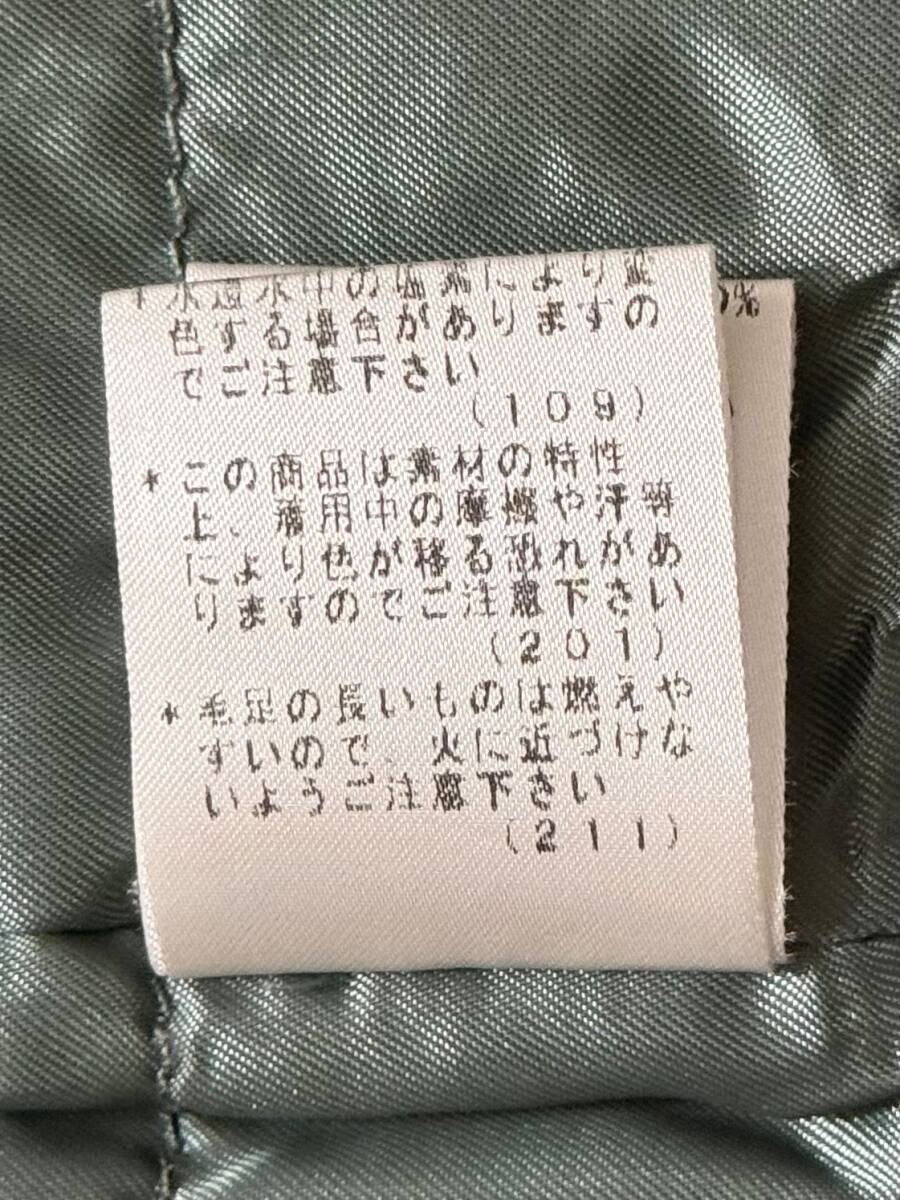 * 水道水中の塩素により変
色する場合がありますの
でご注意下さい
(109)
* この商品は素材の特性
上、着用中の摩擦や汗等
により色が移る恐れがあ
りますのでご注意下さい
(201)
* 毛足の長いものは燃えや
すいので、火に近づけな
いようご注意下さい
(211)
%